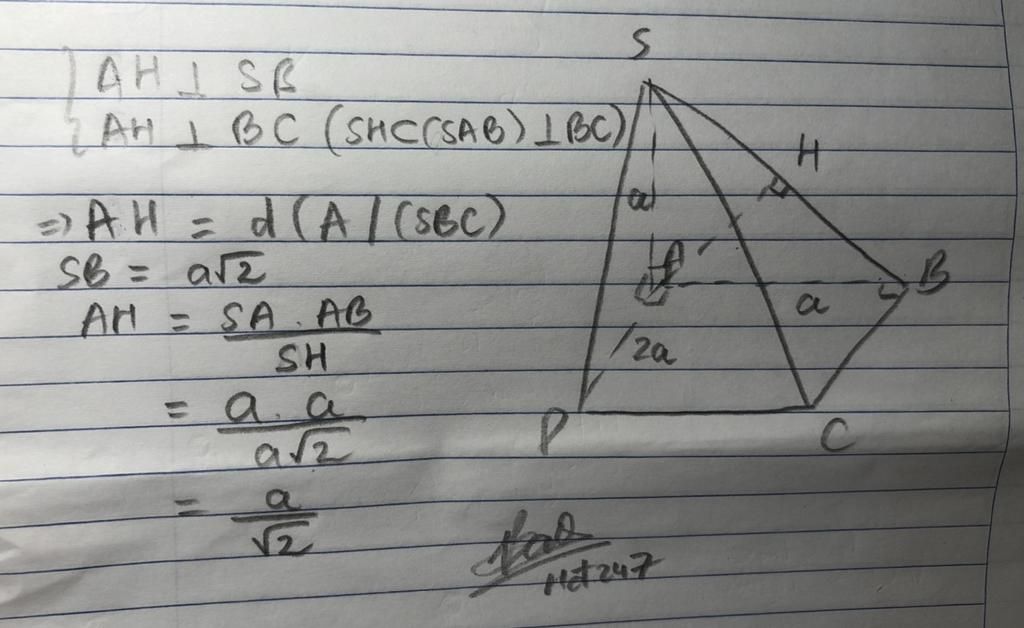 AH ⊥ SB
AH ⊥ BC (SH⊂(SAB)⊥BC)
=> AH = d(A/(SBC)
SB = a√2
AH = SA.AB
SH
= a.a
a√2
= a
√2
S
H
a
A
B
a
2a
P
C
Hct247